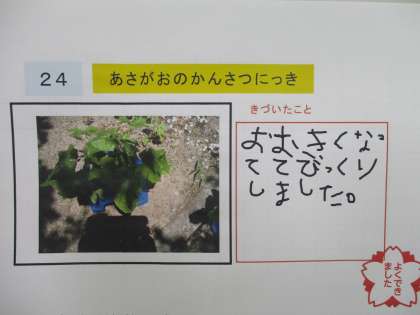 24
あさがおのかんさつにっき
きづいたこと
おおきくなっ
ててびっくり
しました。
よくでき
ました